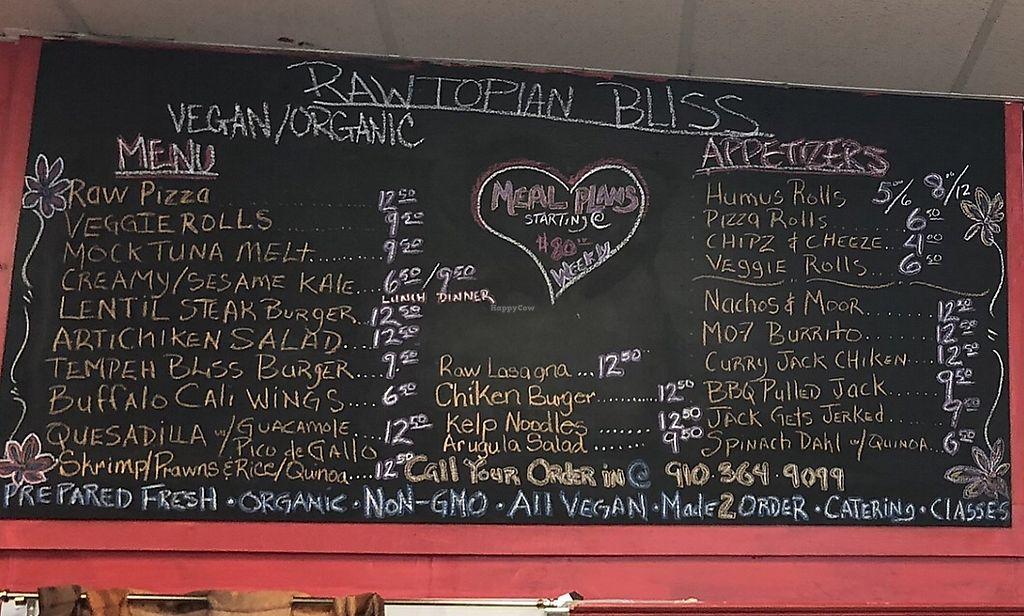 RAWTOPIAN BLISS
VEGAN/ORGANIC
MENU
Raw Pizza 12.50
VEGGIE ROLLS 9.50
MOCK TUNA MELT 9.50
CREAMY/SESAME KALE 6.50/9.50
LUNCH DINNER
LENTIL STEAK BURGER 12.50
ARTICHIKEN SALAD 12.50
TEMPEH BLISS BURGER 9.50
BUFFALO CALI WINGS 6.50
QUESADILLA w/ GUACAMOLE 12.50
Pico de GALLO
Shrimp/PRAWNS & Rice/Quinoa 12.50
MEAL PLANS
STARTING @
$80.00
WEEKLY
HappyCow
Raw Lasagna 12.50
Chiken Burger 12.50
Kelp Noodles 12.50
Arugula Salad 9.50
APPETIZERS
Humus Rolls 5/6 8/12
Pizza Rolls 6.50
CHIPZ & CHEEZE 4.00
Veggie Rolls 6.50
Nachos & Moor 12.50
MO7 BURRITO 12.50
CURRY JACK CHIKEN 12.50
BBQ Pulled JACK 9.50
JACK Gets JERKED 9.50
SPINACH DAHL w/ QUINOA 6.50
CALL YOUR ORDER in @ 910·364·9099
PREPARED FRESH · ORGANIC · NON-GMO · All VEGAN · Made 2 ORDER · CATERING · CLASSES